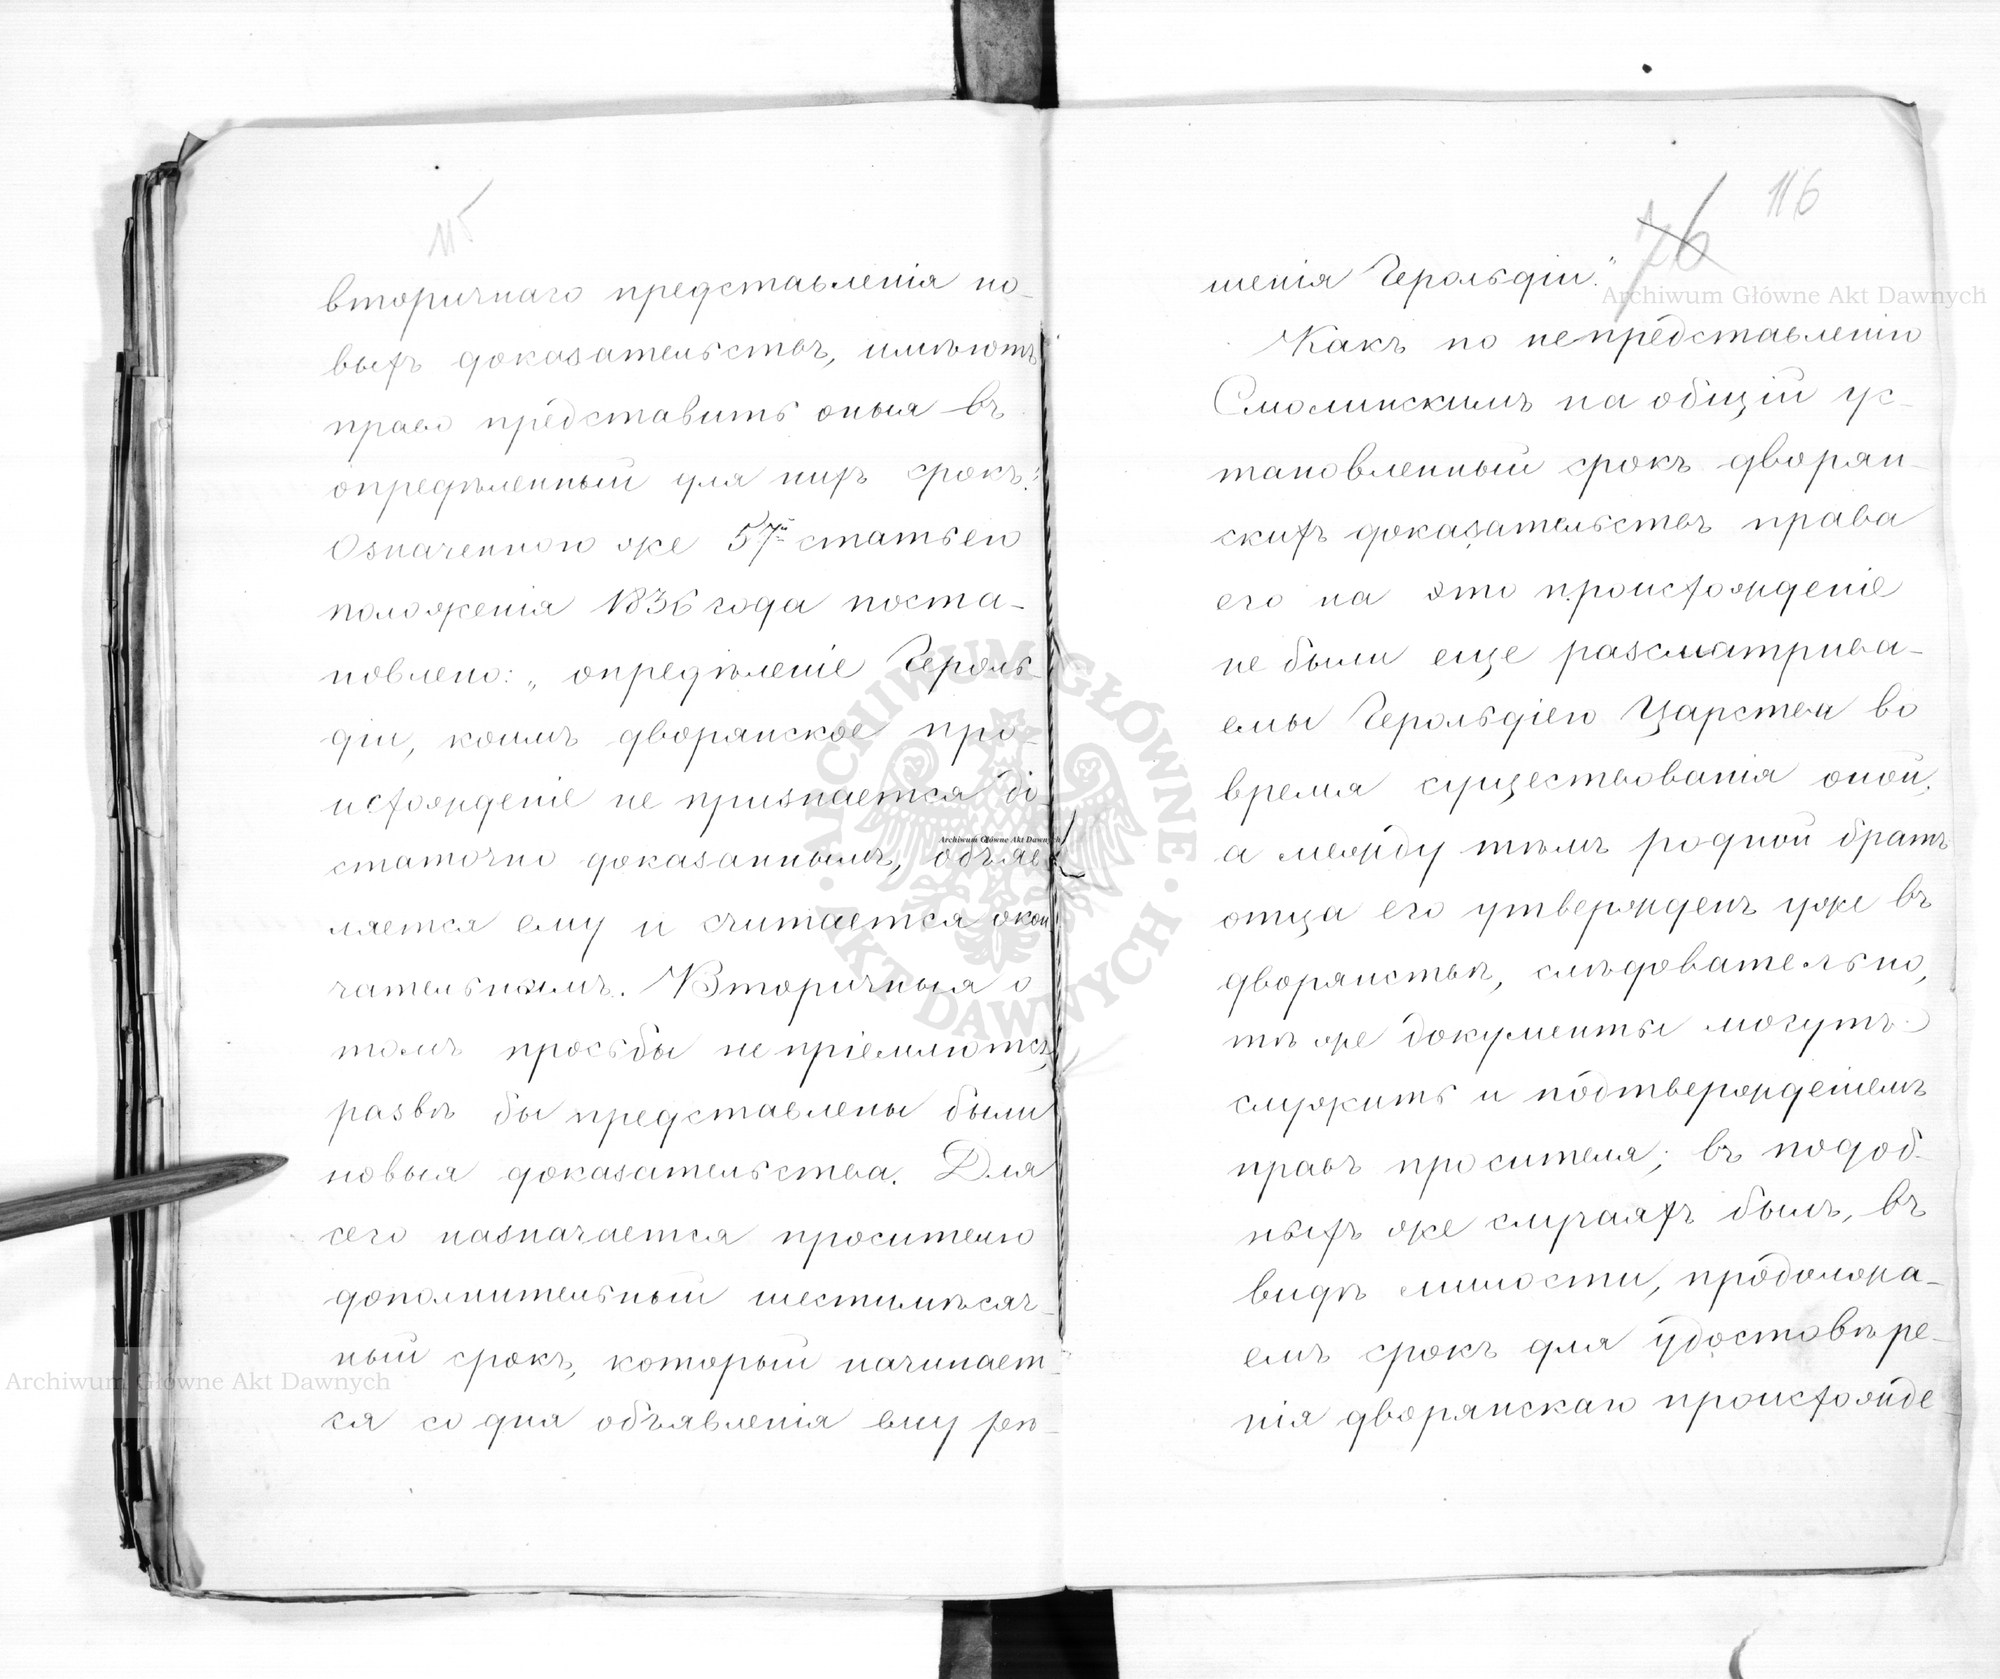 115
вторичнаго представленія но-
выхъ доказательствъ, имѣютъ
право представить оныя въ
опредѣленный для нихъ срокъ."
Означенною же 57й статьею
положенія 1836 года поста-
новлено: „опредѣленіе Героль-
діи, коимъ дворянское про-
исхожденіе не признается до-
статочно доказаннымъ, объяв-
ляется ему и считается окон-
чательнымъ. Вторичныя о
томъ просьбы не пріемлются,
развѣ бы представлены были
новыя доказательства. Для
сего назначается просителю
дополнительный шестимѣсяч-
ный срокъ, который начинает-
ся со дня объявленія ему рѣ-
76 116
шенія Герольдіи."
Какъ по непредставленію
Смолинскимъ на общій ус-
тановленный срокъ дворян-
скихъ доказательствъ права
его на это происхожденіе
не были еще разсматрива-
емы Герольдіею Царства во
время существованія оной,
а между тѣмъ родной братъ
отца его утвержденъ уже въ
дворянствѣ, слѣдовательно,
тѣ же документы могутъ
служить и подтвержденіемъ
правъ просителя; въ подоб-
ныхъ же случаяхъ былъ, въ
видѣ милости, продолжа-
емъ срокъ для удостовѣре-
нія дворянскаго происхожде
Archiwum Główne Akt Dawnych
Archiwum Główne Akt Dawnych
Archiwum Główne Akt Dawnych
ARCHIWUM GŁÓWNE AKT DAWNYCH